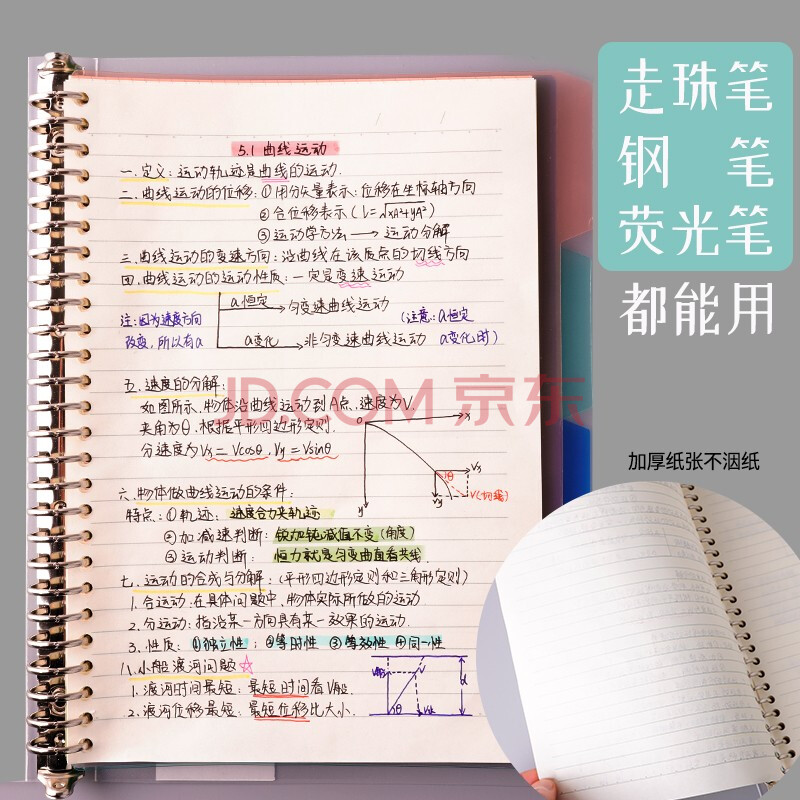 走珠笔
钢 笔
荧光笔
都能用
加厚纸张不洇纸
JD.COM 京东
5.1 曲线运动
一.定义:运动轨迹是曲线的运动.
二.曲线运动的位移:①用分矢量表示:位移在坐标轴方向
②合位移表示(l=√xA²+yA²)
③运动学方法→运动分解
三.曲线运动的变速方向:沿曲线在该质点的切线方向
四.曲线运动的运动性质:一定是变速运动
a恒定→匀变速曲线运动
注:因为速度方向 (注意:a恒定
改变,所以有a a变化→非匀变速曲线运动 a变化时)
五.速度的分解:
如图所示,物体沿曲线运动到A点,速度为V.
夹角为θ,根据平行四边形定则.
分速度为Vx=Vcosθ,Vy=Vsinθ
o x
y
θ Vx
Vy V(切线)
六.物体做曲线运动的条件:
特点:①轨迹:速度合力夹轨迹
②加减速判断:锐加钝减值不变(角度)
③运动判断:恒力就是匀变曲直看共线.
七.运动的合成与分解:(平行四边形定则和三角形定则)
1.合运动:在具体问题中,物体实际所做的运动
2.分运动:指沿某一方向具有某一效果的运动.
3.性质:①独立性;②等时性 ③等效性 ④同一性
八.小船渡河问题☆
1.渡河时间最短:最短时间看V船.
2.渡河位移最短:最短位移比大小.
V船 V d
θ V水